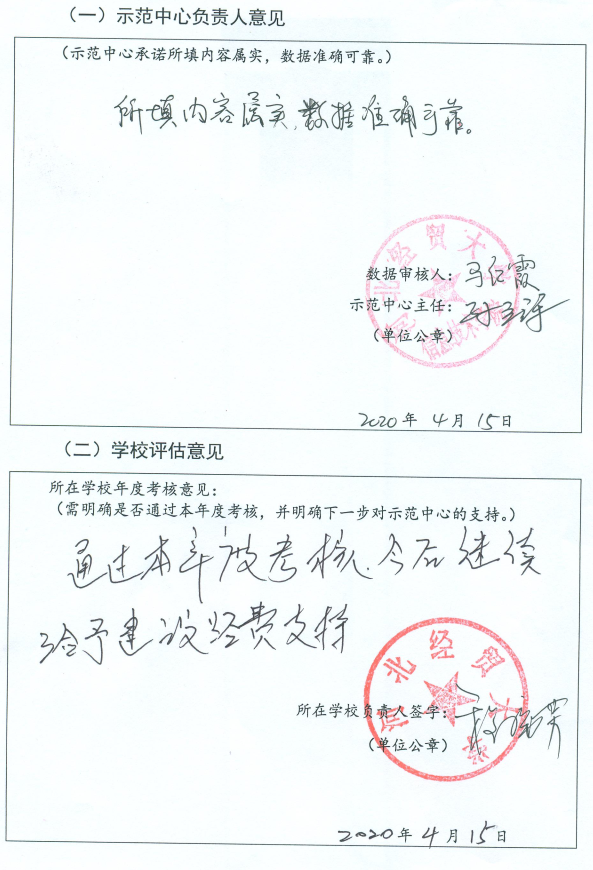 （一）示范中心负责人意见
（示范中心承诺所填内容属实，数据准确可靠。）
所填内容属实，数据准确可靠。
数据审核人：马红霞
示范中心主任：
（单位公章）
河北经贸大学
信息技术学院
2020 年 4 月 15 日
（二）学校评估意见
所在学校年度考核意见：
（需明确是否通过本年度考核，并明确下一步对示范中心的支持。）
通过本年度考核，今后继续
给予建设经费支持
河北经贸大学
所在学校负责人签字：
（单位公章）
2020 年 4 月 15 日